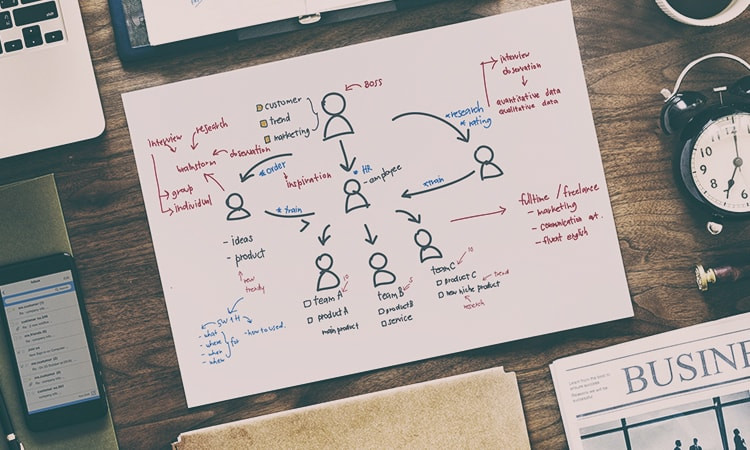 BOSS
customer
trend
marketing
interview
observation
quantitative data
qualitative data
* research
* rating
interview
research
brainstorm
observation
group
individual
* order
inspiration
* HR
- employee
* train
* train
- ideas
- product
new
trendy
fulltime / freelance
- marketing
- communication
- fluent english
10
team A
product A
main product
5
team B
product B
service
10
team C
product C
trend
new niche product
research
5W1H
- what
- where
- when
for
- how to used.
BUSINE